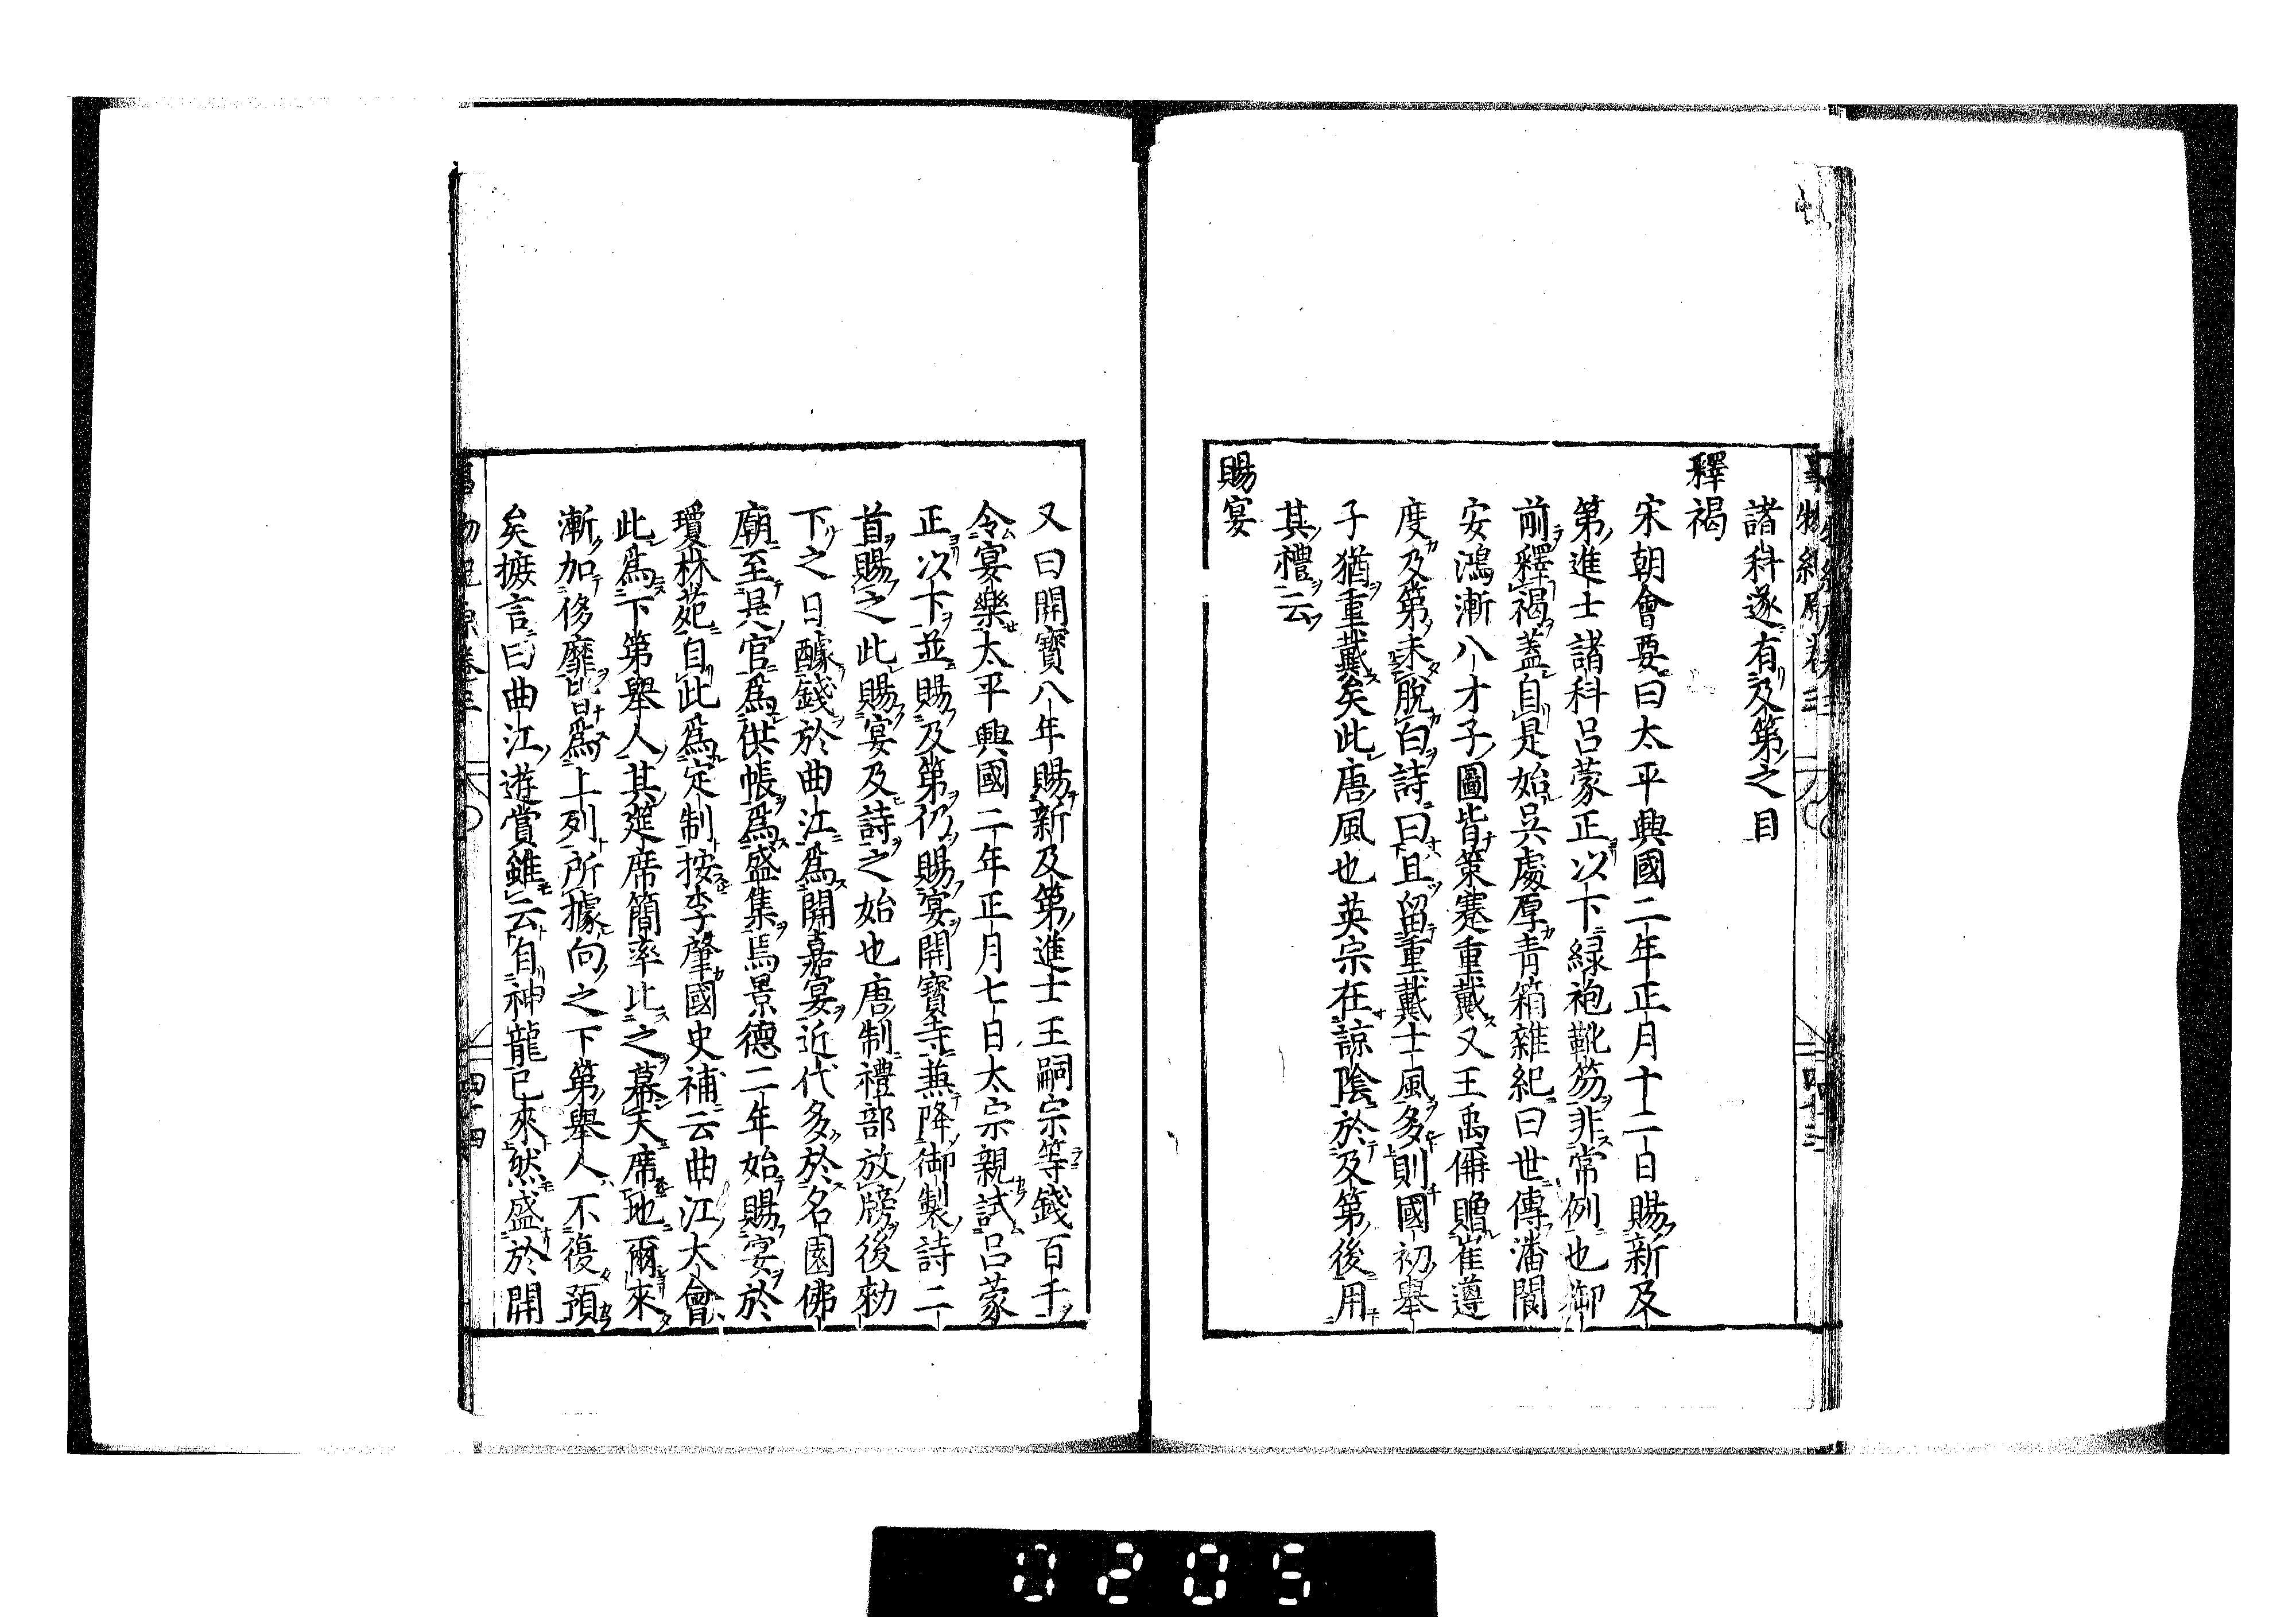 諸科遂有及第之目
釋褐
宋朝會要曰太平興國二年正月十二日賜新及
第進士諸科呂蒙正以下緑袍靴笏非常例也御
前釋褐蓋自是始吳處厚青箱雜紀曰世傳潘閬
安鴻漸八才子圖皆策蹇重戴又王禹偁贈崔遵
度及第未脫白詩曰且留重戴士風多則國初舉
子猶重戴矣此唐風也英宗在諒陰於及第後用
其禮云
賜宴
又曰開寶八年賜新及第進士王嗣宗等錢百千
令宴樂太平興國二年正月七日太宗親試呂蒙
正以下並賜及第仍賜宴開寶寺兼降御製詩二
首賜之此賜宴及詩之始也唐制禮部放牓後勑
下之日醵錢於曲江爲開嘉宴近代多於名園佛
廟至是官爲供帳爲盛集焉景德二年始賜宴於
瓊林苑自此爲定制按李肇國史補云曲江大會
此爲下第舉人其筵席簡率此之幕天席地爾來
漸加侈靡皆爲上列所據向之下第舉人不復預
矣摭言曰曲江遊賞雖云自神龍已來然盛於開
四十四
0205